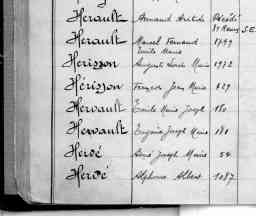 Hérault Armand Aristide Décédé
Hérault Marcel Fernand 1799
Emile Marie
Hérisson August Louis Marie 1972
Hérisson François Jean Marie 829
Hervault Emile Marie Joseph 180
Hervault Eugène Joseph Marie 181
Hervé Aimé Joseph Marie 54
Hervé Alphonse Albert 1087